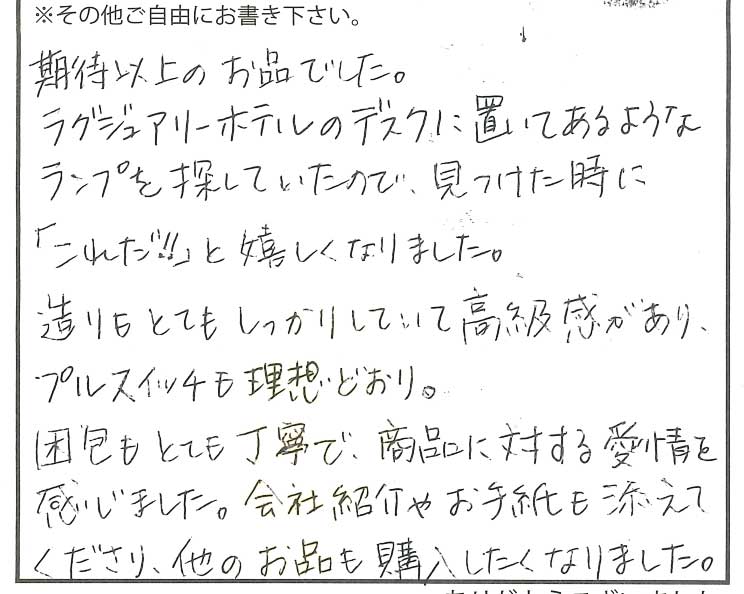 ※その他ご自由にお書き下さい。
期待以上のお品でした。
ラグジュアリーホテルのデスクに置いてあるような
ランプを探していたので、見つけた時に
「これだ!!」と嬉しくなりました。
造りもとてもしっかりしていて高級感があり、
プルスイッチも理想どおり。
困包もとても丁寧で、商品に対する愛情を
感じました。会社紹介やお手紙も添えて
くださり、他のお品も購入したくなりました。